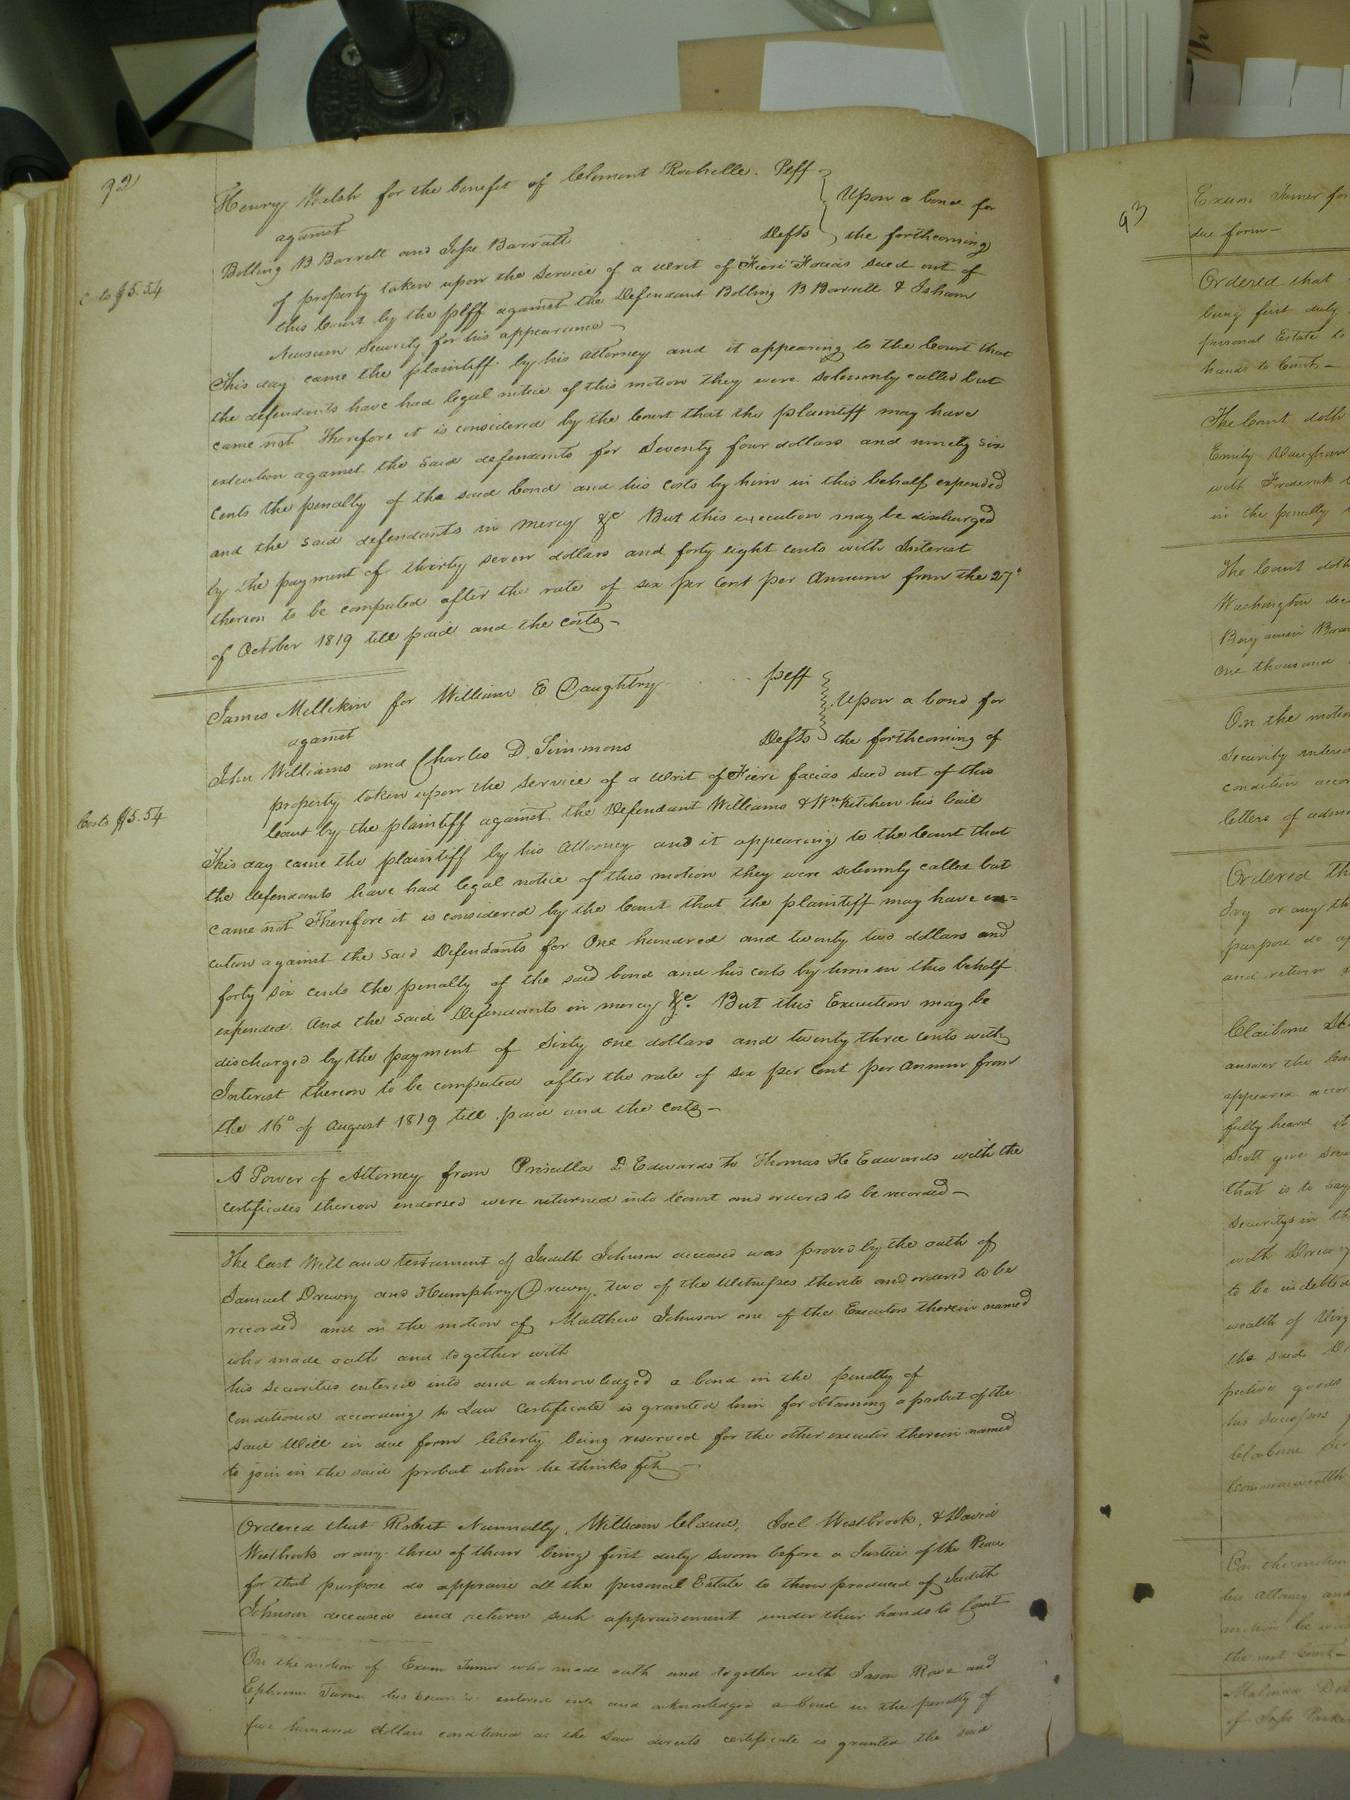 92
Henry Welsh for the benefit of Clement Rochelle. Plff
against
Upon a bond for
Bolling B Barrett and Jesse Barrett
Defts
the forthcoming
Costs $5.54
of property taken upon the service of a writ of Fieri Facias sued out of
this Court by the plff against the Defendant Bolling B Barrett & Isham
Newsum Security for his appearance—
This day came the plaintiff by his attorney and it appearing to the Court that
the defendants have had legal notice of this motion they were solemnly called but
came not Therefore it is considered by the Court that the plaintiff may have
execution against the said defendants for Seventy four dollars and ninety six
cents the penalty of the said bond and his costs by him in this behalf expended
and the said defendants in mercy &c But this execution may be discharged
by the payment of thirty seven dollars and forty eight cents with Interest
thereon to be computed after the rate of six per Cent per Annum from the 27th
of October 1819 till paid and the costs—
James Millikin for William E Daughtry plff
against
Upon a bond for
John Williams and Charles D. Simmons
Defts
the forthcoming of
property taken upon the service of a writ of Fieri facias sued out of this
Costs $5.54
Court by the plaintiff against the Defendant Williams & Wm Kitchen his bail
This day came the plaintiff by his attorney and it appearing to the Court that
the defendants have had legal notice of this motion they were solemnly called but
came not Therefore it is considered by the Court that the plaintiff may have exe=
cution against the said Defendants for One hundred and twenty two dollars and
forty six cents the penalty of the said bond and his costs by him in this behalf
expended. And the said Defendants in mercy &c. But this Execution may be
discharged by the payment of Sixty one dollars and twenty three cents with
Interest thereon to be computed after the rate of six per Cent per annum from
the 16th of August 1819 till paid and the costs—
A Power of Attorney from Priscilla D Edwards to Thomas H Edwards with the
certificates thereon endorsed were returned into Court and ordered to be recorded—
The last Will and testament of Judith Johnson deceased was proved by the oath of
Samuel Drewry and Humphry Drewry two of the Witnesses thereto and ordered to be
recorded and on the motion of Matthew Johnson one of the Executors therein named
who made oath and together with
his securities entered into and acknowledged a bond in the penalty of
conditioned according to Law Certificate is granted him for obtaining a probat of the
said Will in due form liberty being reserved for the other executor therein named
to join in the said probat when he thinks fit—
Ordered that Robert Nunnally, William Claud, Joel Westbrook, & David
Westbrook or any three of them being first duly sworn before a Justice of the Peace
for that purpose do appraise all the personal Estate to them produced of Judith
Johnson deceased and return such appraisement under their hands to Court
On the motion of Exum Turner who made oath and together with Jason Rowe and
Ephraim Turner his securities entered into and acknowledged a bond in the penalty of
five hundred dollars conditioned as the Law directs certificate is granted the said
93
Exum Turner for
due form—
Ordered that
being first duly
personal Estate to
hands to Court—
The Court doth
Emily Vaughan
with Frederick
in the penalty
The Court doth
Washington dec
Benjamin
One thousand
On the motion
Security entered
condition accor
letters of admi
Ordered th
Ivy or any th
purpose do ap
and return
Claiborne
answer the
appeared accor
fully heard it
Scott give
that is to say
Security in th
with Drewry
to be indebted
wealth of Virg
the said
pective goods
his
Claiborne
Commonwealth
On the motion
his attorney and
motion he
the next Court—
of Jesse Parker